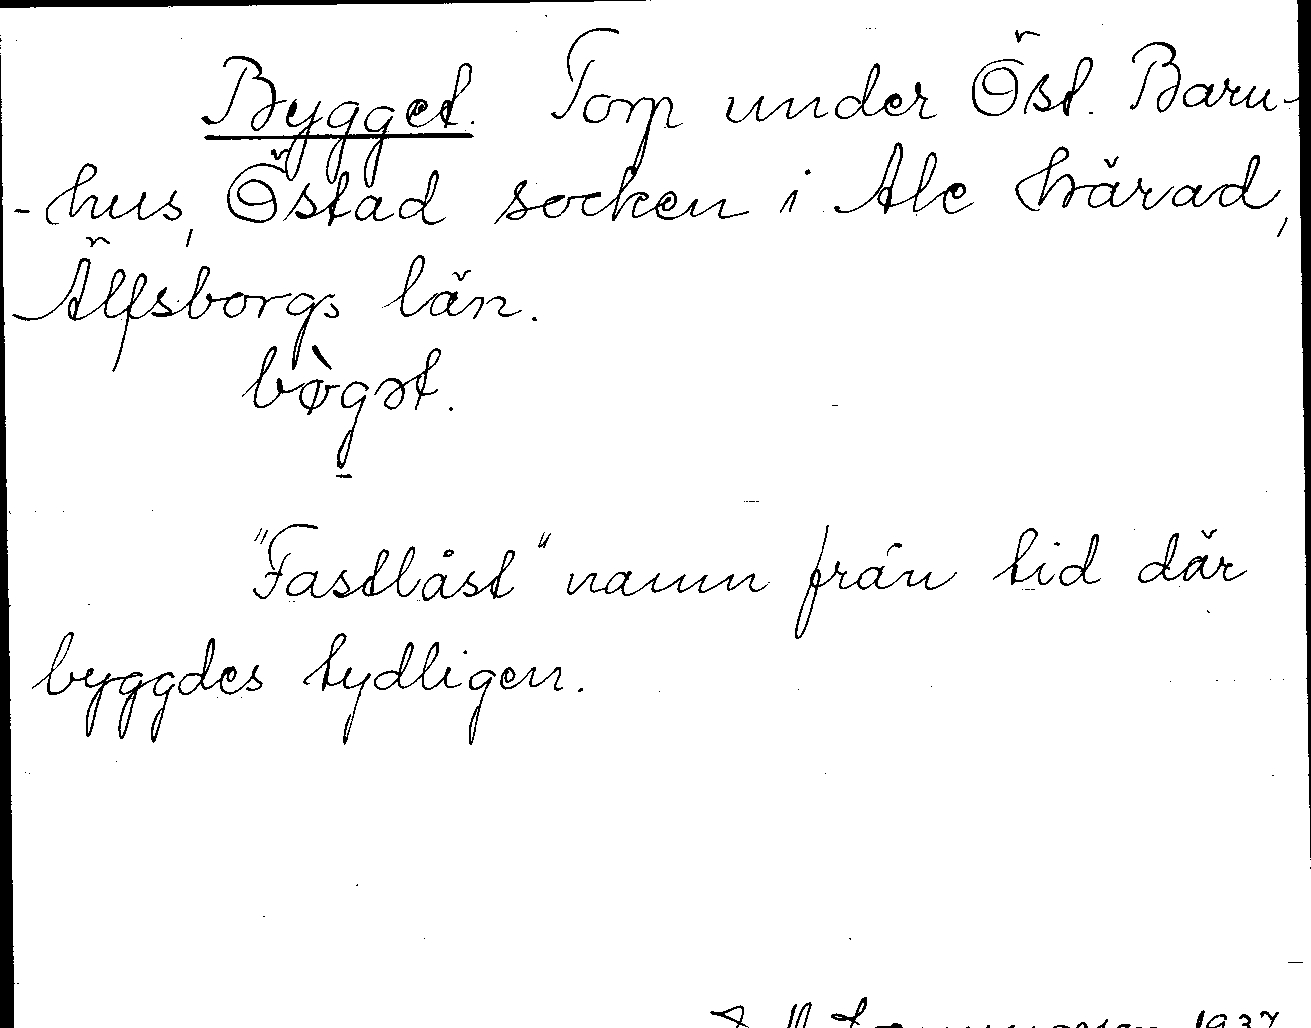 Bygget. Torp under Öst. Baru-
-hus, Östad socken i Ale härad,
Älfsborgs län.
bø̀gət.
"Fastlåst" namn från tid där
byggdes tydligen.
1937